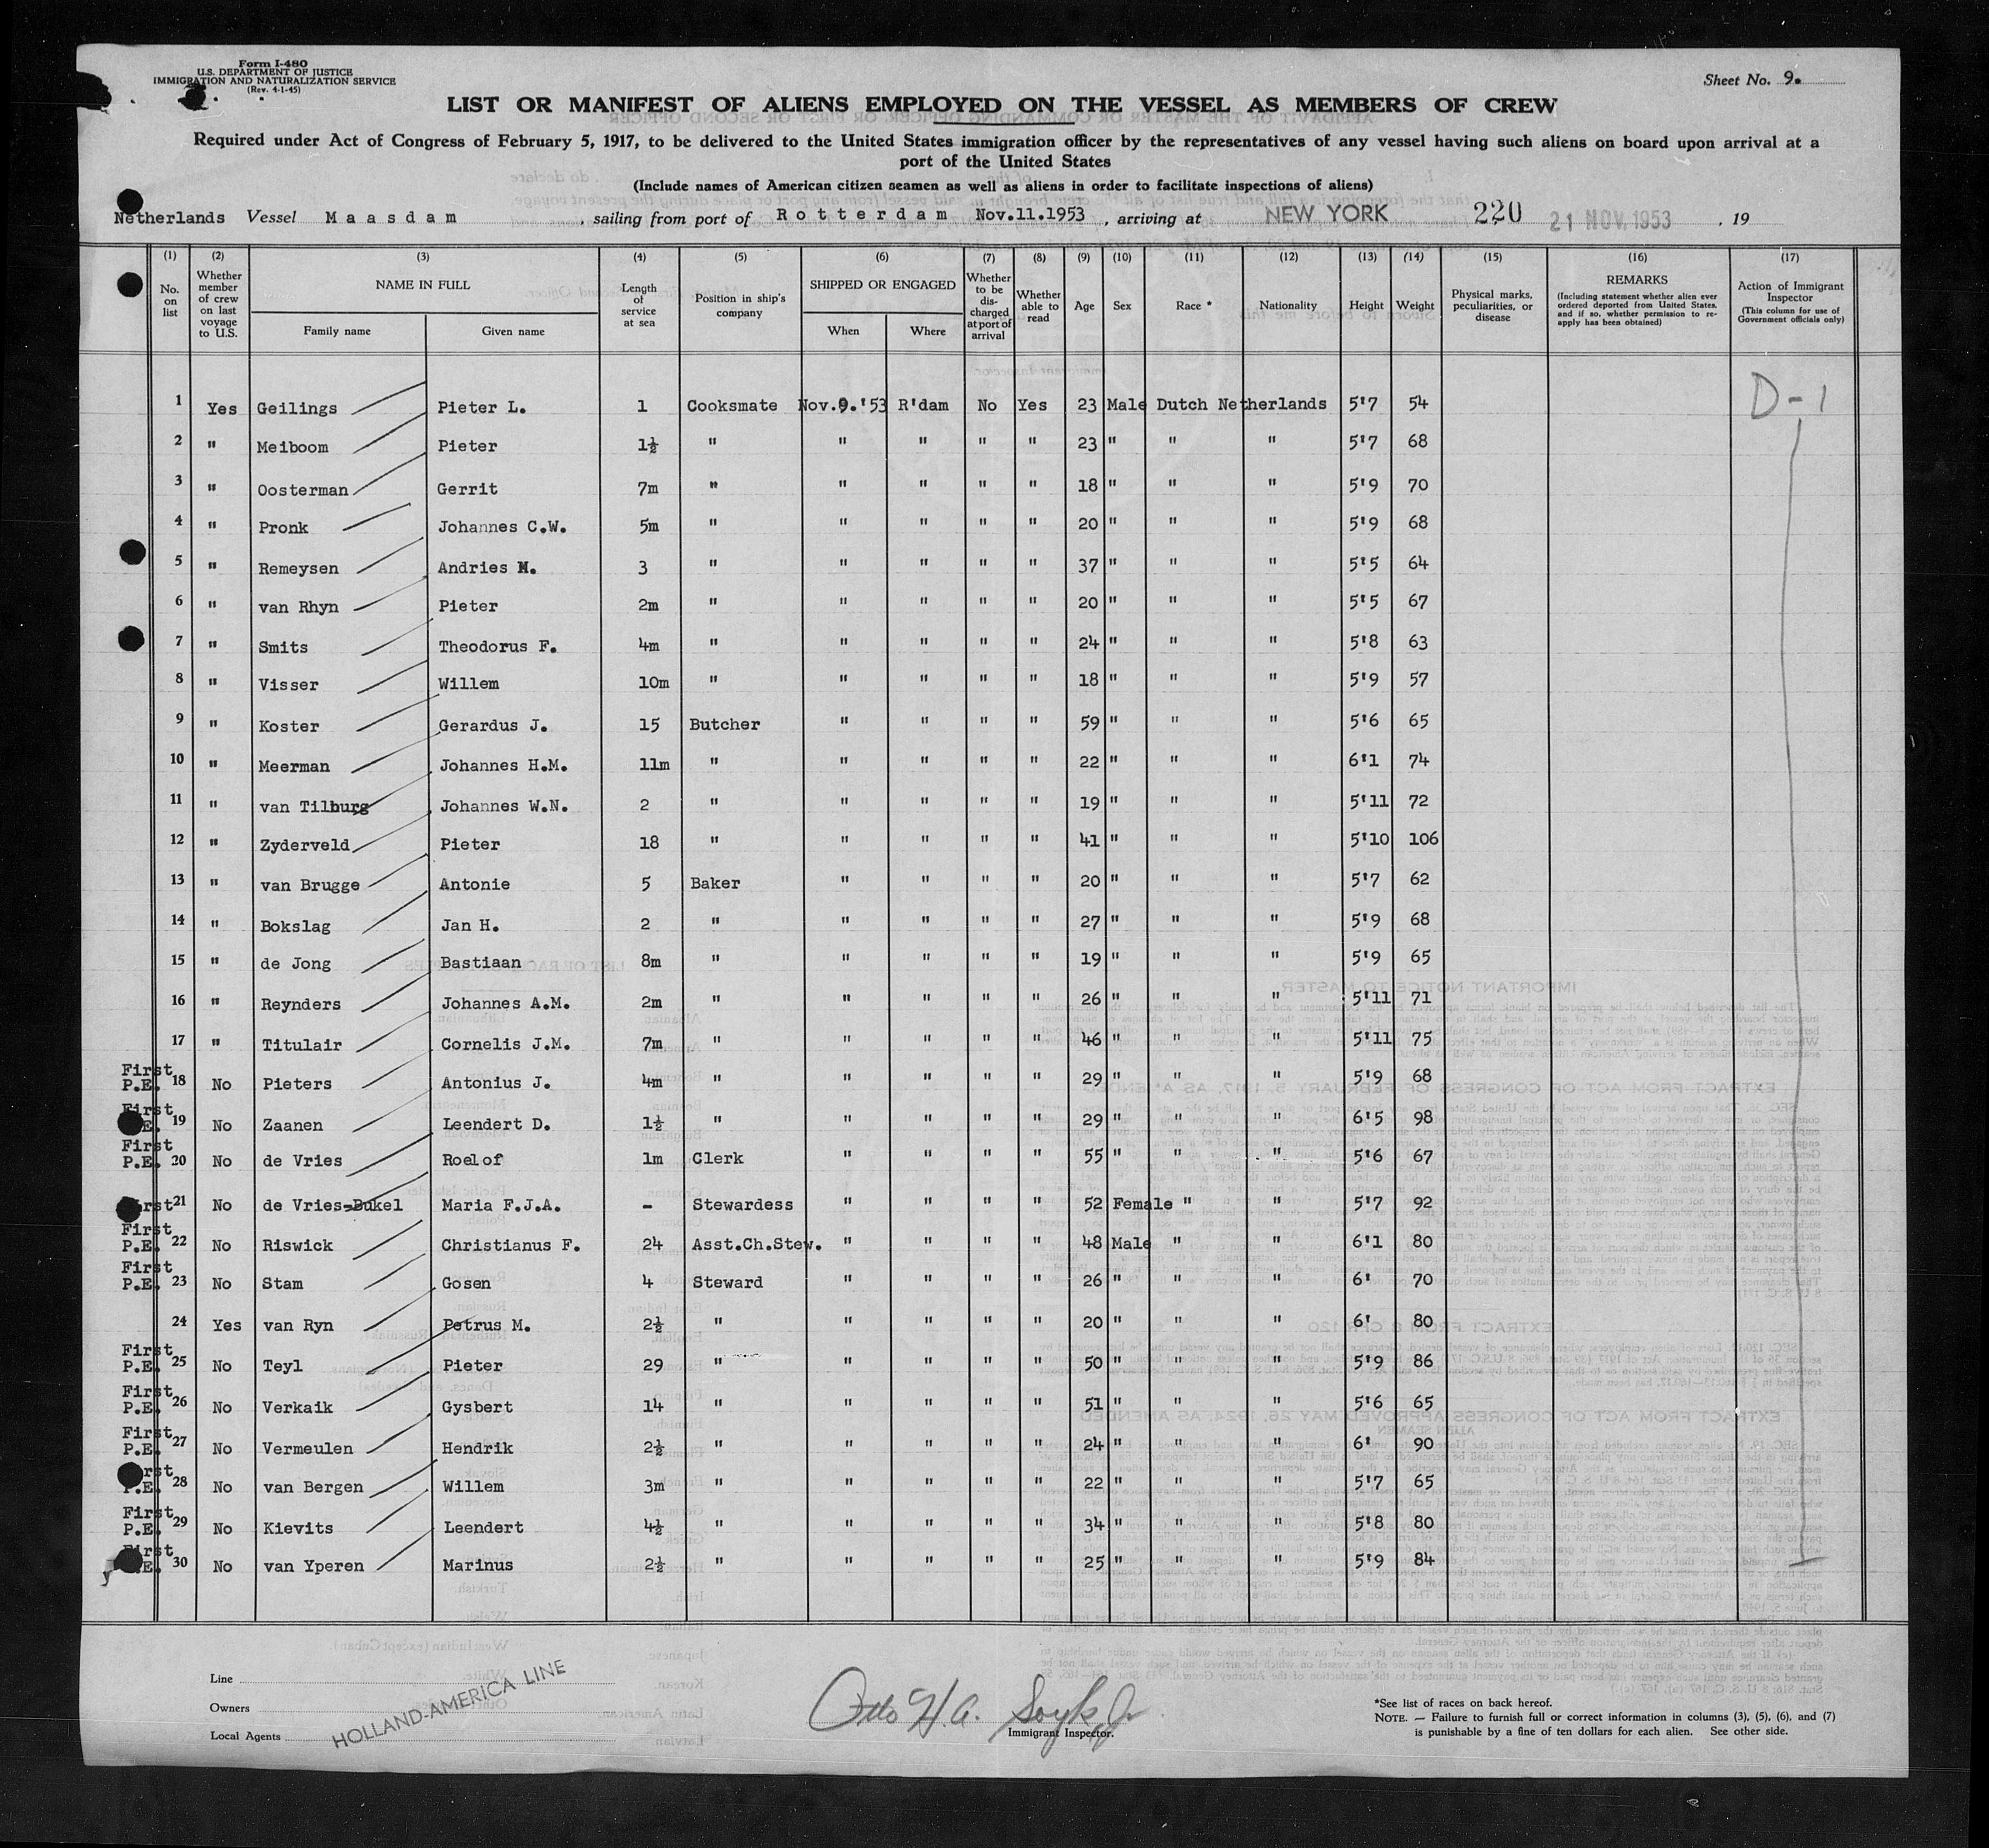 Form I-480
U.S. DEPARTMENT OF JUSTICE
IMMIGRATION AND NATURALIZATION SERVICE
(Rev. 4-1-45)
Sheet No. 9.
LIST OR MANIFEST OF ALIENS EMPLOYED ON THE VESSEL AS MEMBERS OF CREW
Required under Act of Congress of February 5, 1917, to be delivered to the United States immigration officer by the representatives of any vessel having such aliens on board upon arrival at a
port of the United States
(Include names of American citizen seamen as well as aliens in order to facilitate inspections of aliens)
Netherlands Vessel Maasdam , sailing from port of Rotterdam Nov.11.1953 , arriving at NEW YORK 220 21 NOV. 1953 , 19
(1) (2) (3) (4) (5) (6) (7) (8) (9) (10) (11) (12) (13) (14) (15) (16) (17)
No. on list
Whether member of crew on last voyage to U.S.
NAME IN FULL
Family name Given name
Length of service at sea
Position in ship's company
SHIPPED OR ENGAGED
When Where
Whether to be discharged at port of arrival
Whether able to read
Age Sex Race * Nationality Height Weight
Physical marks, peculiarities, or disease
REMARKS
(Including statement whether alien ever ordered deported from United States, and if so, whether permission to re-apply has been obtained)
Action of Immigrant Inspector
(This column for use of Government officials only)
D-1
1 Yes Geilings Pieter L. 1 Cooksmate Nov.9.'53 R'dam No Yes 23 Male Dutch Netherlands 5'7 54
2 " Meiboom Pieter 1½ " " " " " 23 " " " 5'7 68
3 " Oosterman Gerrit 7m " " " " " 18 " " " 5'9 70
4 " Pronk Johannes C.W. 5m " " " " " 20 " " " 5'9 68
5 " Remeysen Andries M. 3 " " " " " 37 " " " 5'5 64
6 " van Rhyn Pieter 2m " " " " " 20 " " " 5'5 67
7 " Smits Theodorus F. 4m " " " " " 24 " " " 5'8 63
8 " Visser Willem 10m " " " " " 18 " " " 5'9 57
9 " Koster Gerardus J. 15 Butcher " " " " 59 " " " 5'6 65
10 " Meerman Johannes H.M. 11m " " " " " 22 " " " 6'1 74
11 " van Tilburg Johannes W.N. 2 " " " " " 19 " " " 5'11 72
12 " Zyderveld Pieter 18 " " " " " 41 " " " 5'10 106
13 " van Brugge Antonie 5 Baker " " " " 20 " " " 5'7 62
14 " Bokslag Jan H. 2 " " " " " 27 " " " 5'9 68
15 " de Jong Bastiaan 8m " " " " " 19 " " " 5'9 65
16 " Reynders Johannes A.M. 2m " " " " " 26 " " " 5'11 71
17 " Titulair Cornelis J.M. 7m " " " " " 46 " " " 5'11 75
First P.E. 18 No Pieters Antonius J. 4m " " " " " 29 " " " 5'9 68
First E. 19 No Zaanen Leendert D. 1½ " " " " " 29 " " " 6'5 98
First P.E. 20 No de Vries Roelof 1m Clerk " " " " 55 " " " 5'6 67
rst 21 No de Vries-Bukel Maria F.J.A. - Stewardess " " " " 52 Female " " 5'7 92
First P.E. 22 No Riswick Christianus F. 24 Asst.Ch.Stew. " " " " 48 Male " " 6'1 80
First P.E. 23 No Stam Gosen 4 Steward " " " " 26 " " " 6' 70
24 Yes van Ryn Petrus M. 2½ " " " " " 20 " " " 6' 80
First P.E. 25 No Teyl Pieter 29 " " " " " 50 " " " 5'9 86
First P.E. 26 No Verkaik Gysbert 14 " " " " " 51 " " " 5'6 65
First P.E. 27 No Vermeulen Hendrik 2½ " " " " " 24 " " " 6' 90
rst P.E. 28 No van Bergen Willem 3m " " " " " 22 " " " 5'7 65
First P.E. 29 No Kievits Leendert 4½ " " " " " 34 " " " 5'8 80
First E. 30 No van Yperen Marinus 2½ " " " " " 25 " " " 5'9 84
Line
Owners
Local Agents
HOLLAND-AMERICA LINE
Otto H.A. Soyk, Jr.
Immigrant Inspector.
*See list of races on back hereof.
NOTE. — Failure to furnish full or correct information in columns (3), (5), (6), and (7)
is punishable by a fine of ten dollars for each alien. See other side.